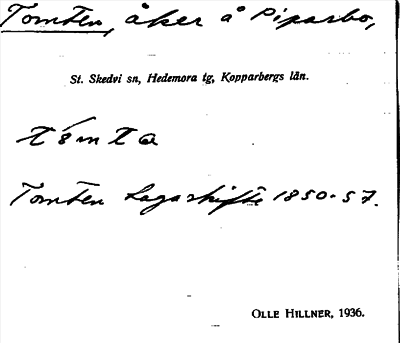 Tomten, åker å Piparbo,
St. Skedvi sn, Hedemora tg, Kopparbergs län.
Tomten Lagaskifte 1850-57.
OLLE HILLNER, 1936.